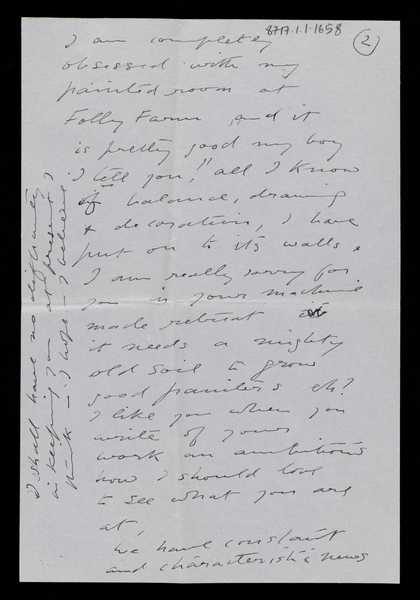 8717.1.1.1658
2
I am completely
obsessed with my
painted room at
Folly Farm, and it
is pretty good my boy
I tell you!" all I know
of balance, drawing
& decoration, I have
put on to its walls.
I am really sorry for
you in your machine
made retreat
it needs a mighty
old soil to grow
good painters eh?
I like you when you
write of your
work an ambitions
how I should love
to see what you are
at,
We have constant
and characteristic news
I shall have no difficulty
in keeping I am at present I
think – I hope – I believe.